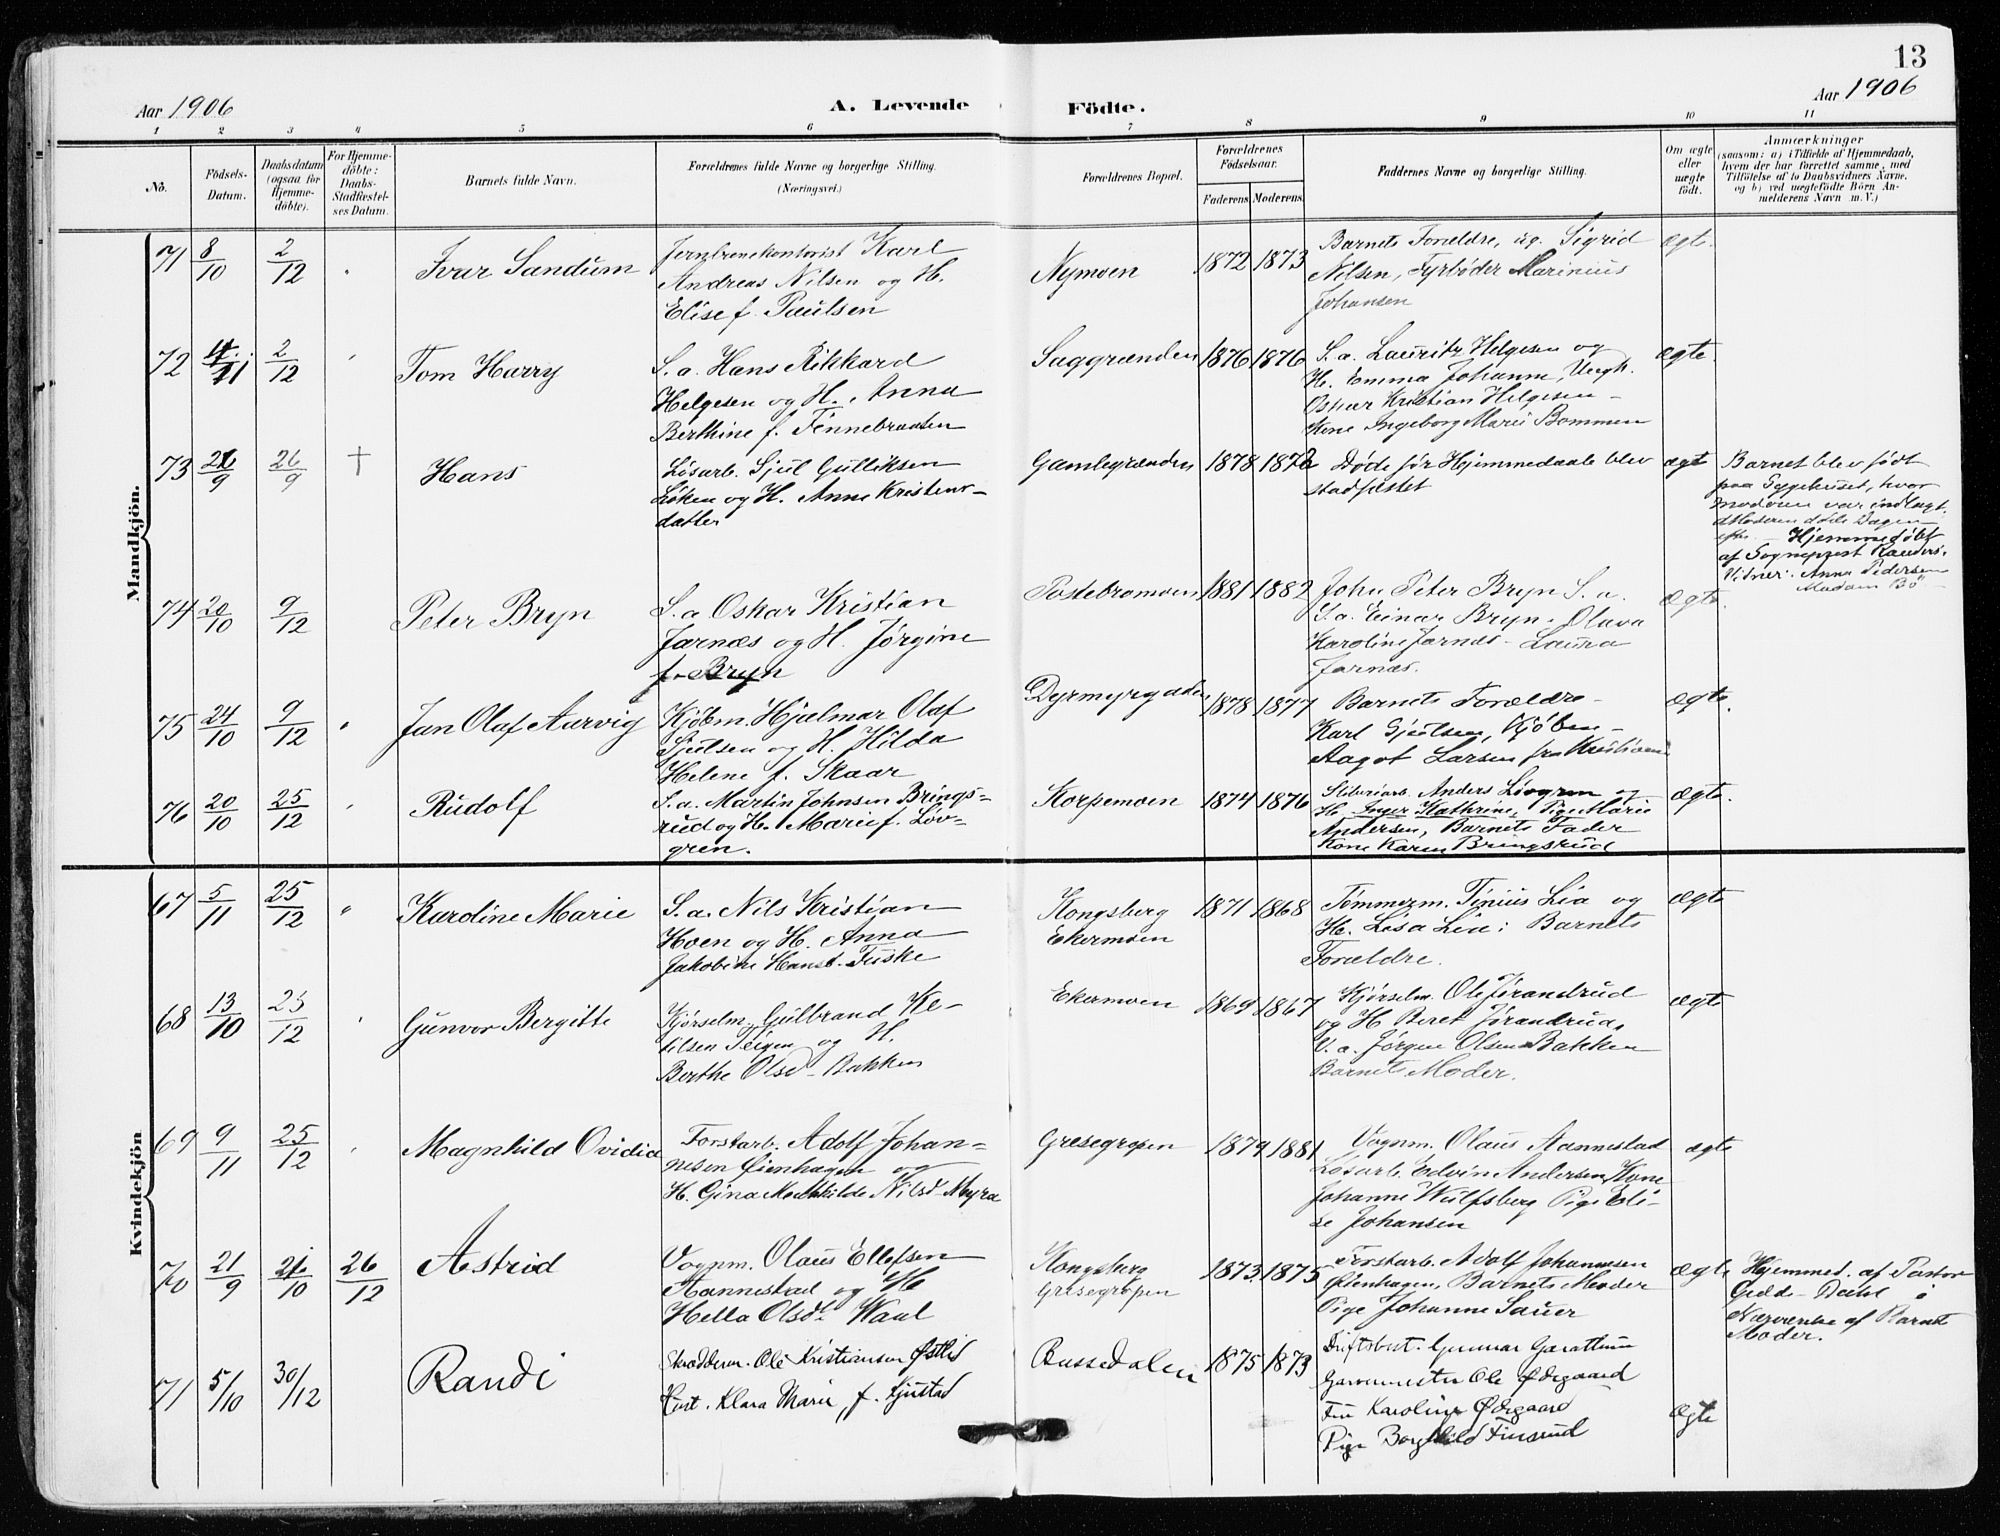 13
Aar 1906
A. Levende Födte.
Aar 1906
1 2 3 4 5 6 7 8 9 10 11
No.
Födsels-
Datum.
Daabsdatum
(ogsaa for
Hjemme-
döbte).
For Hjemme-
döbte:
Daabs-
Stadfæstel-
ses Datum.
Barnets fulde Navn.
Forældrenes fulde Navne og borgerlige Stilling.
(Næringsvei.)
Forældrenes Bopæl.
Forældrenes
Födselsaar.
Faderens. Moderens.
Faddernes Navne og borgerlige Stilling.
Om ægte
eller
uægte
födt.
Anmærkninger
(saasom: a) i Tilfælde af Hjemmedaab,
hvem der har forrettet samme, med
Tilföielse af to Daabsvidners Navne,
og b) ved uægtefödte Börn An-
melderens Navn m. V.)
Mandkjön.
71 8/10 2/12 " Ivar Sandum
Jernbanekontorist Karl
Andreas Nilsen og H.
Elise f. Paulsen
Nymoen 1872 1873
Barnets Forældre, ug. Sigrid
Nilsen, Fyrbøder Marinius
Johansen
ægte.
72 4/11 2/12 " Tom Harry
S. a. Hans Rikkard
Helgesen og H. Anna
Berthine f. Tennebraaten
Saggrænden 1876 1876
S. a. Lauritz Helgesen og
H. Emma Johanne, Ungk.
Oskar Kristian Helgesen -
Kone Ingeborg Marie Bommen
ægte.
73 26/9 26/9 † Hans
Løsarb. Sjul Gulliksen
Løken og H. Anne Kristens-
datter
Gamlegrænden 1878 1872
Døde før Hjemmedaab blev
stadfæstet
ægte
Barnet blev født
paa Sygehuset, hvor
moderen var indlagt.
Moderen døde Dagen
efter - Hjemmedøbt
af Sogneprest Randers.
Vidner: Anna Pedersen
Madam Bö
74 20/10 9/12 Peter Bryn
S. a Oskar Kristian
Jarnæs og H. Jørgine
f. Bryn
Postebromoen 1881 1882
John Peter Bryn S. a.
S. a. Einar Bryn. Olava
Karoline Jarnæs - Laura
Jarnæs.
ægte.
75 24/10 9/12 " Jan Olaf Aarvig
Kjøbm. Hjalmar Olaf
Sjulsen og H. Hilda
Helene f. Skaar
Dyrmyrgaden 1878 1877
Barnets Forældre -
Karl Sjulsen, Kjøbm -
Aagot Larsen fra Kristiania
ægte.
76 20/10 25/12 " Rudolf
S. a. Martin Johnsen Brings-
rud og H. Marie f. Løv-
gren.
Korpemoen 1874 1876
Sliberiarb. Anders Lövgren og
H. Inger Kathrine, Pige Marie
Andersen, Barnets Fader
Kone Karen Bringsrud
ægte.
Kvindekjön
67 5/11 25/12 " Karoline Marie
S. a. Nils Kristian
Hoen og H. Anna
Jakobine Hansd. Fuske
Kongsberg
Ekermoen
1871 1868
Tømmerm. Tinius Lia og
H. Lisa Lia; Barnets
Forældre.
ægte
68 13/10 25/12 " Gunvor Bergitte
Kjørselm. Gulbrand Ke-
tilsen Teigen og H.
Berthe Olsd. Bakken
Ekermoen 1869 1867
Kjørselm. Ole Jørandrud
og H Beret Jørandrud,
U. a. Jørgen Olsen Bakken
Barnets Moder.
ægte
69 9/11 25/12 " Magnhild Ovidia
Forstarb. Adolf Johan-
nesen Øienhagen og
H. Gina Mathilde Nilsd. Myra
Græsegropen 1879 1881
Vognm. Olaus Aannestad
Løsarb. Edvin Andersen, Kone
Johanne Wulfsberg Pige Eli-
se Johansen
ægte
70 21/9 21/10 26/12 Astrid
Vognm. Olaus Ellefsen
Aannestad og H
Hella Olsd. Waal
Kongsberg
Græsegropen
1873 1875
Forstarb. Adolf Johannesen
Øienhagen, Barnets Moder
Pige Johanne Sauer
ægte
Hjemmed. af Pastor
Gedde-Dahl i
Nærværelse af Barnets
Moder.
71 5/10 30/12 Randi
Skrædderm. Ole Kristiansen Østlid
Hust. Klara Marie, f. Kjustad
Bussedalen 1875 1873
Driftsbest. Gunnar Garathun
Garvermester Ole Ødegaard
Fru Karoline Ødegaard
Pige Borghild Finsrud
ægte